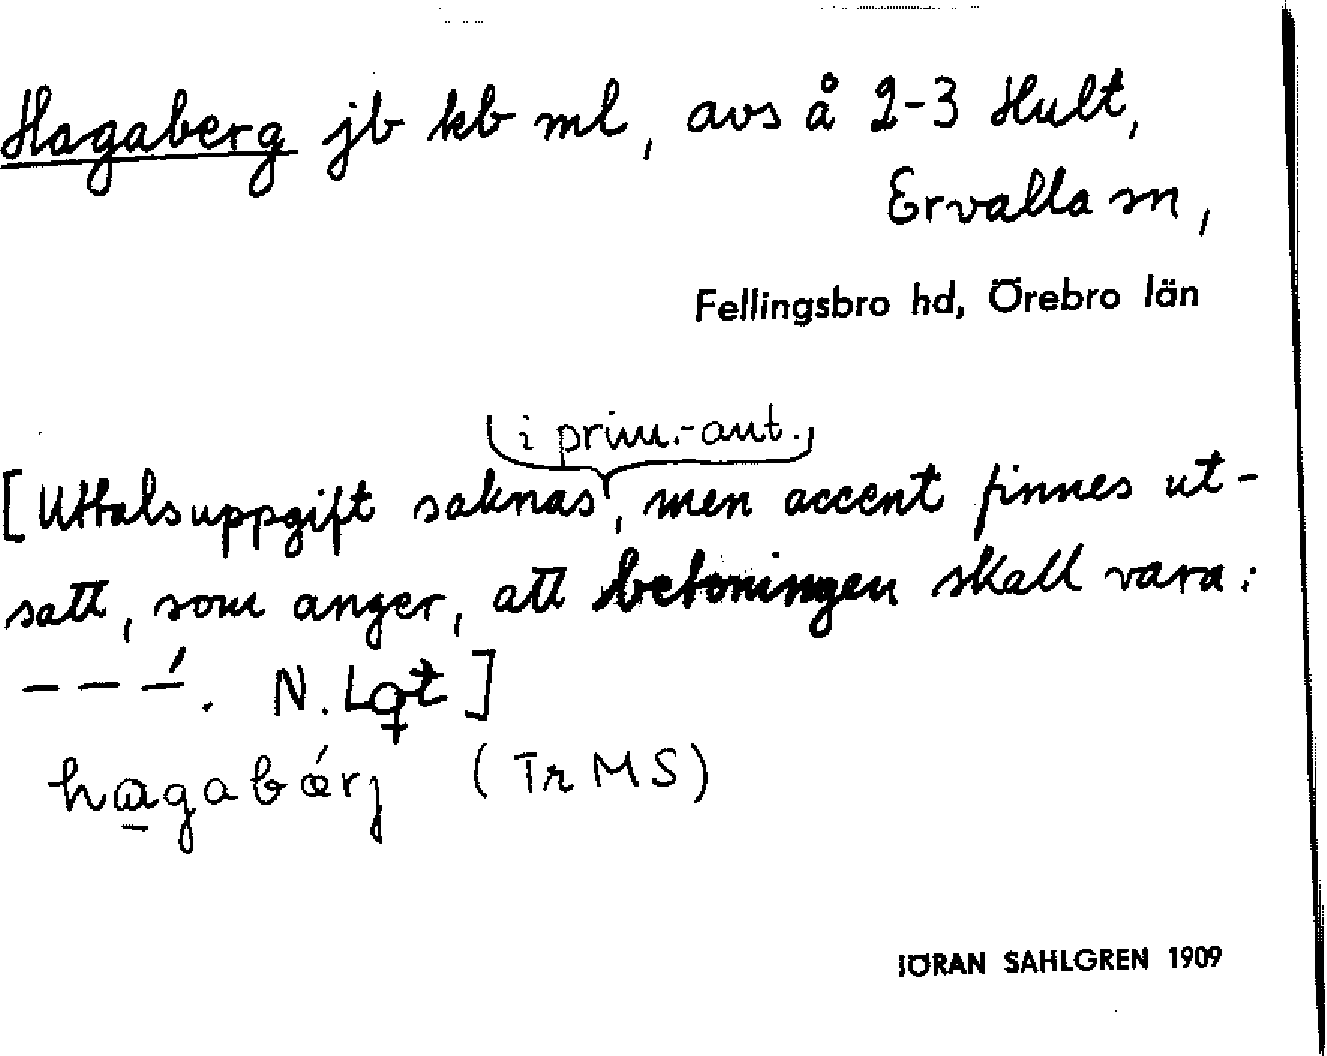 Hagaberg jb kb ml, avs å 2-3 Hult,
Ervalla sn,
Fellingsbro hd, Örebro län
i prim.-ant.
[Uttalsuppgift saknas, men accent finnes ut-
satt, som anger, att betoningen skall vara:
– – –́. N. L t]
hagabǽrj (Tr MS)
JÖRAN SAHLGREN 1909